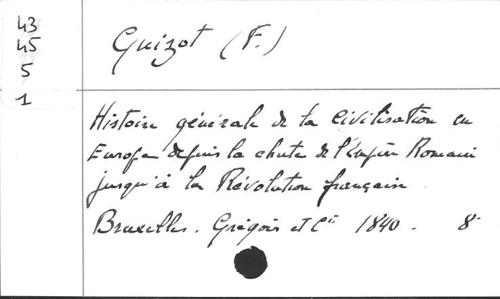 43
45
5
1
Guizot (F.)
Histoire générale de la Civilisation en
Europe depuis la chute de l'Empire Romain
jusqu'à la Révolution française
Bruxelles. Grégoir et Cie 1840. 8°